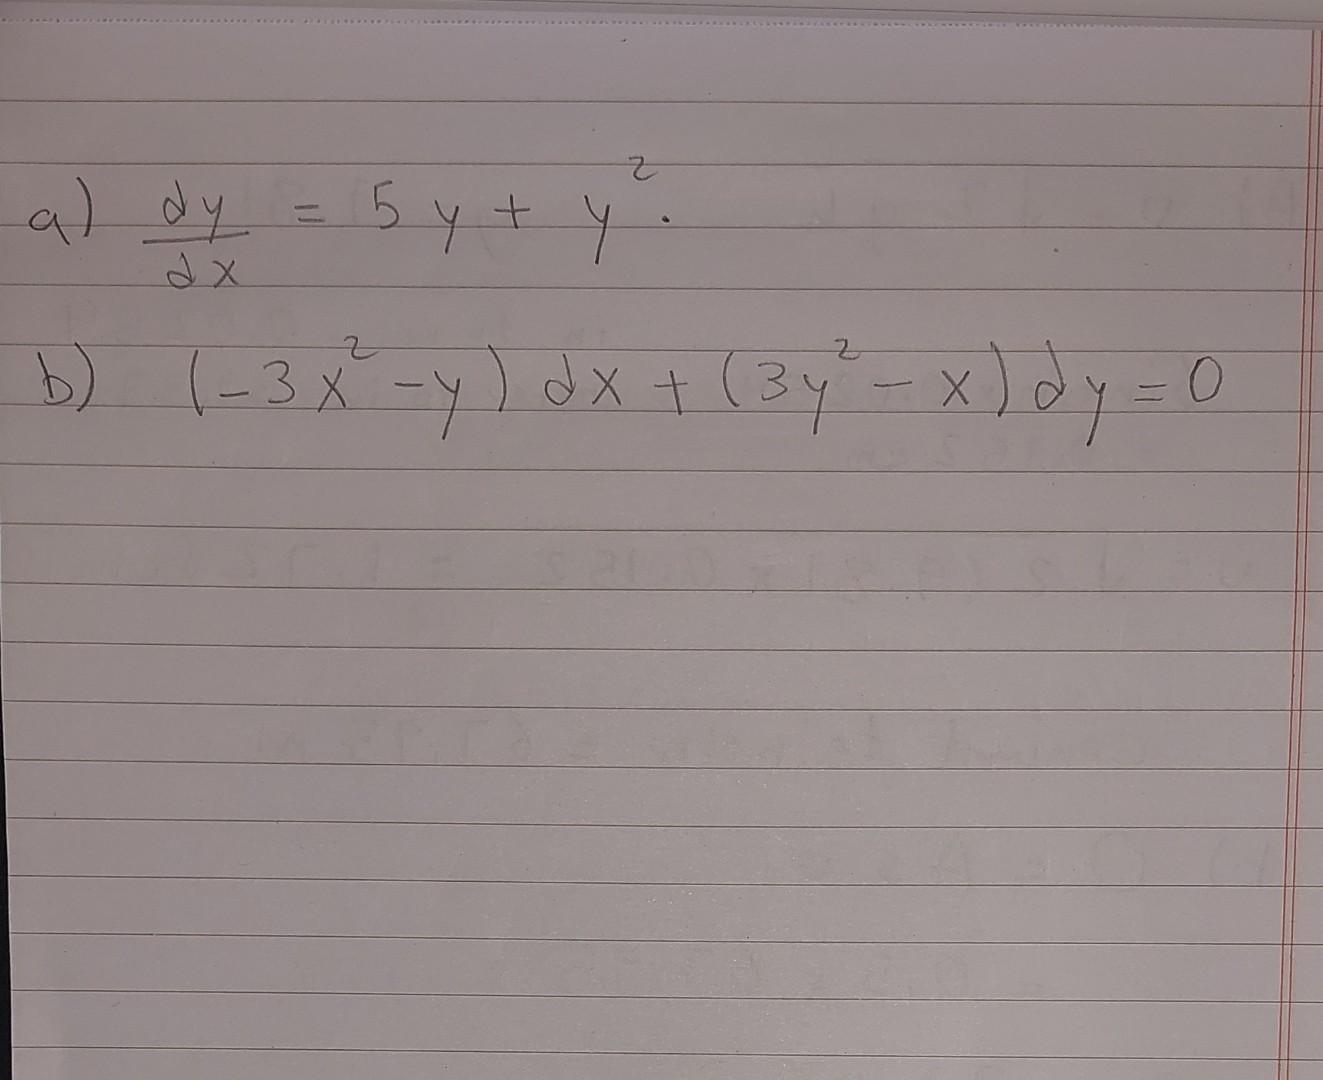 a) dy/dx = 5y + y².
b) (-3x² - y) dx + (3y² - x) dy = 0